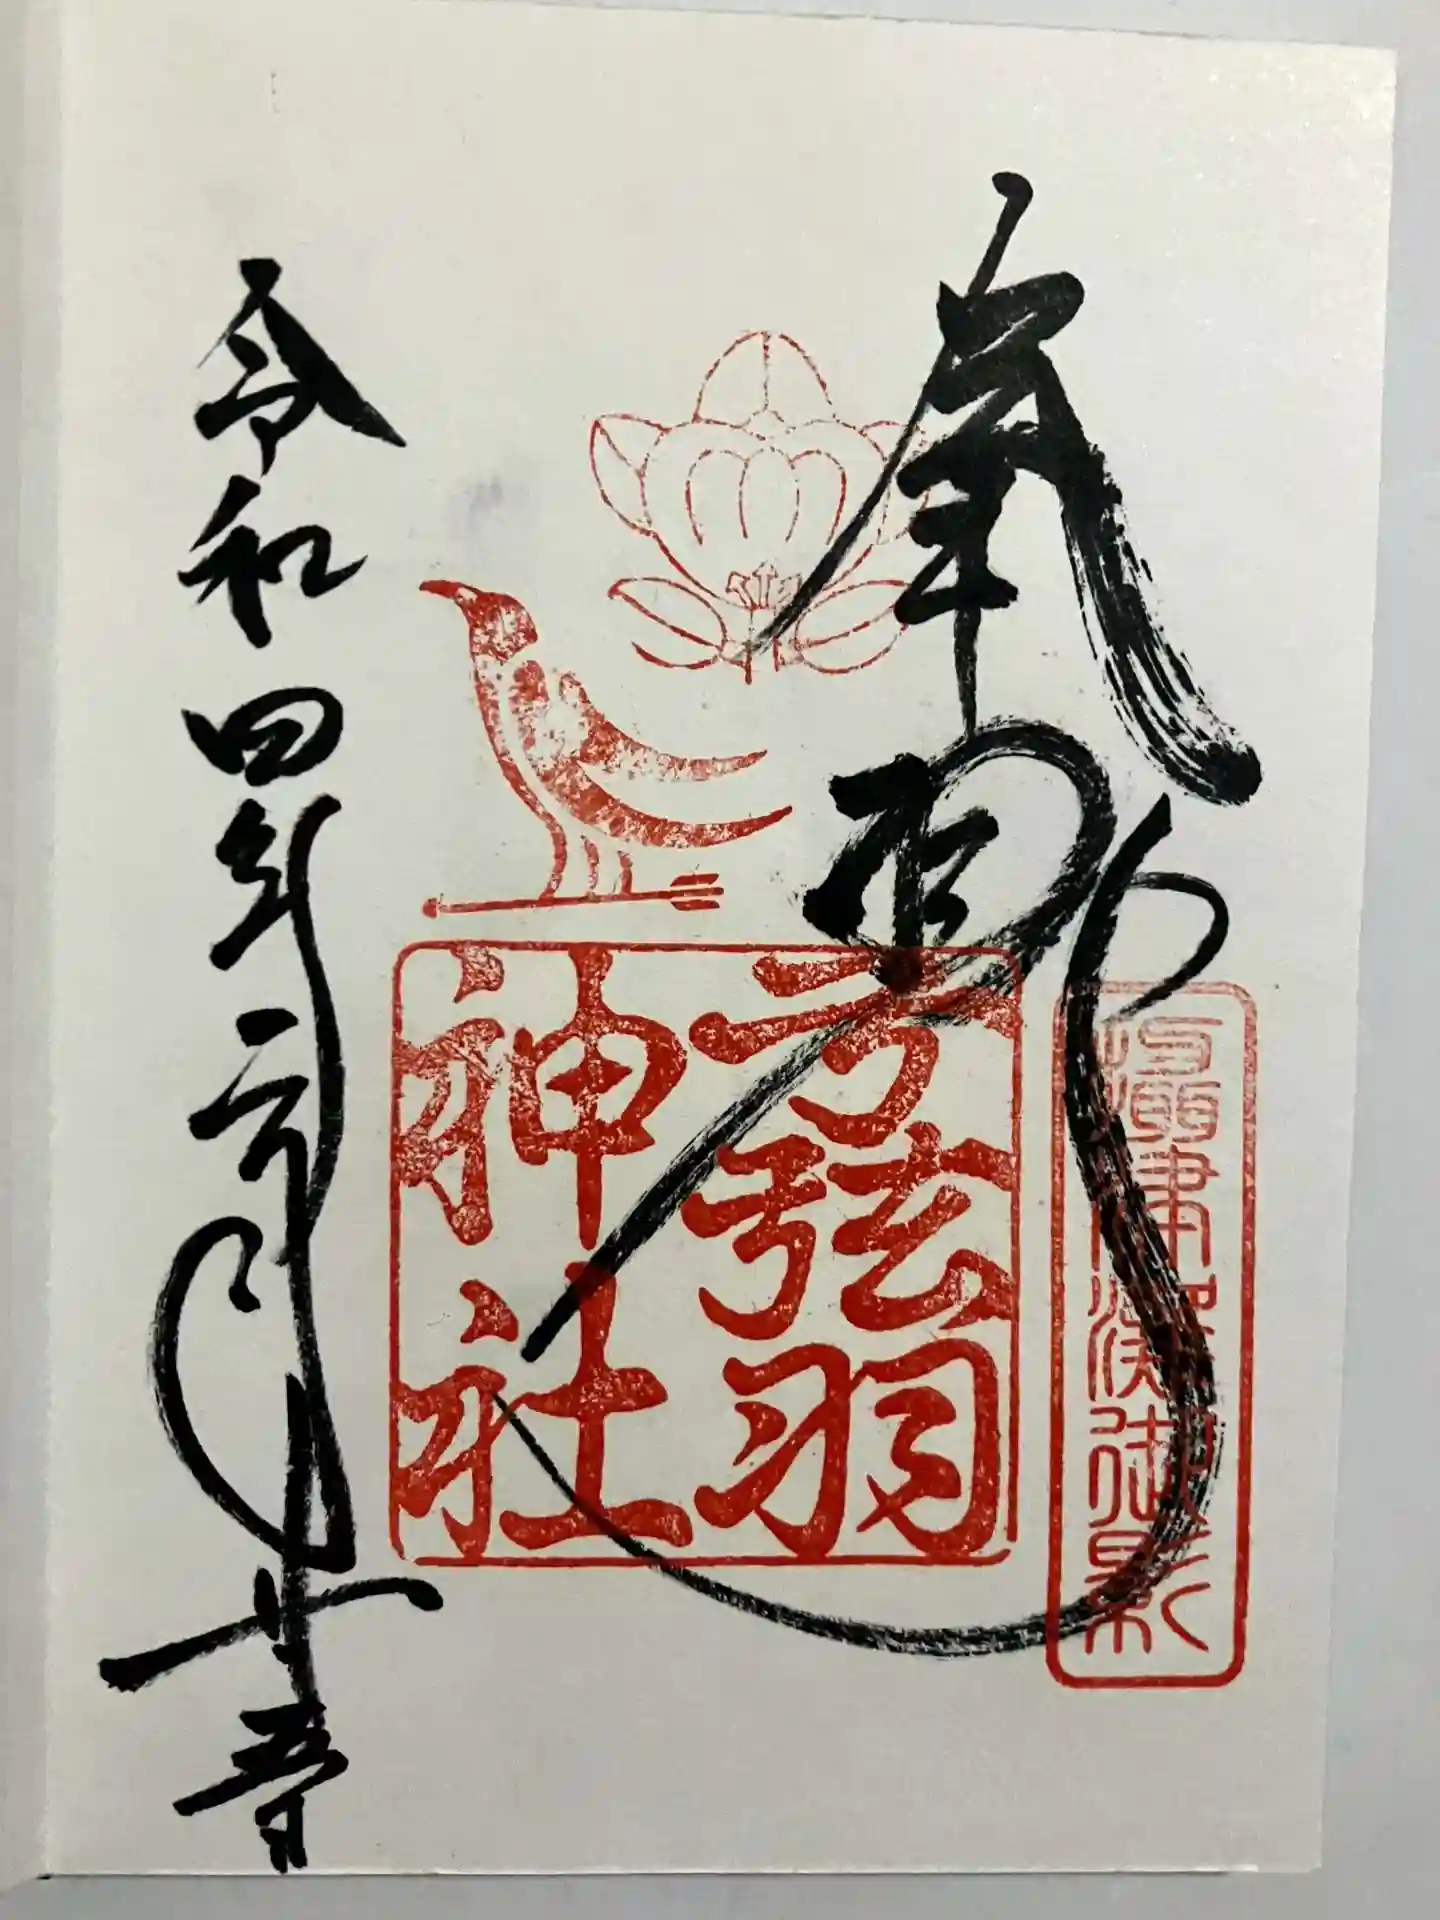 奉拝
弓弦羽
神社
令和四年二月廿五日